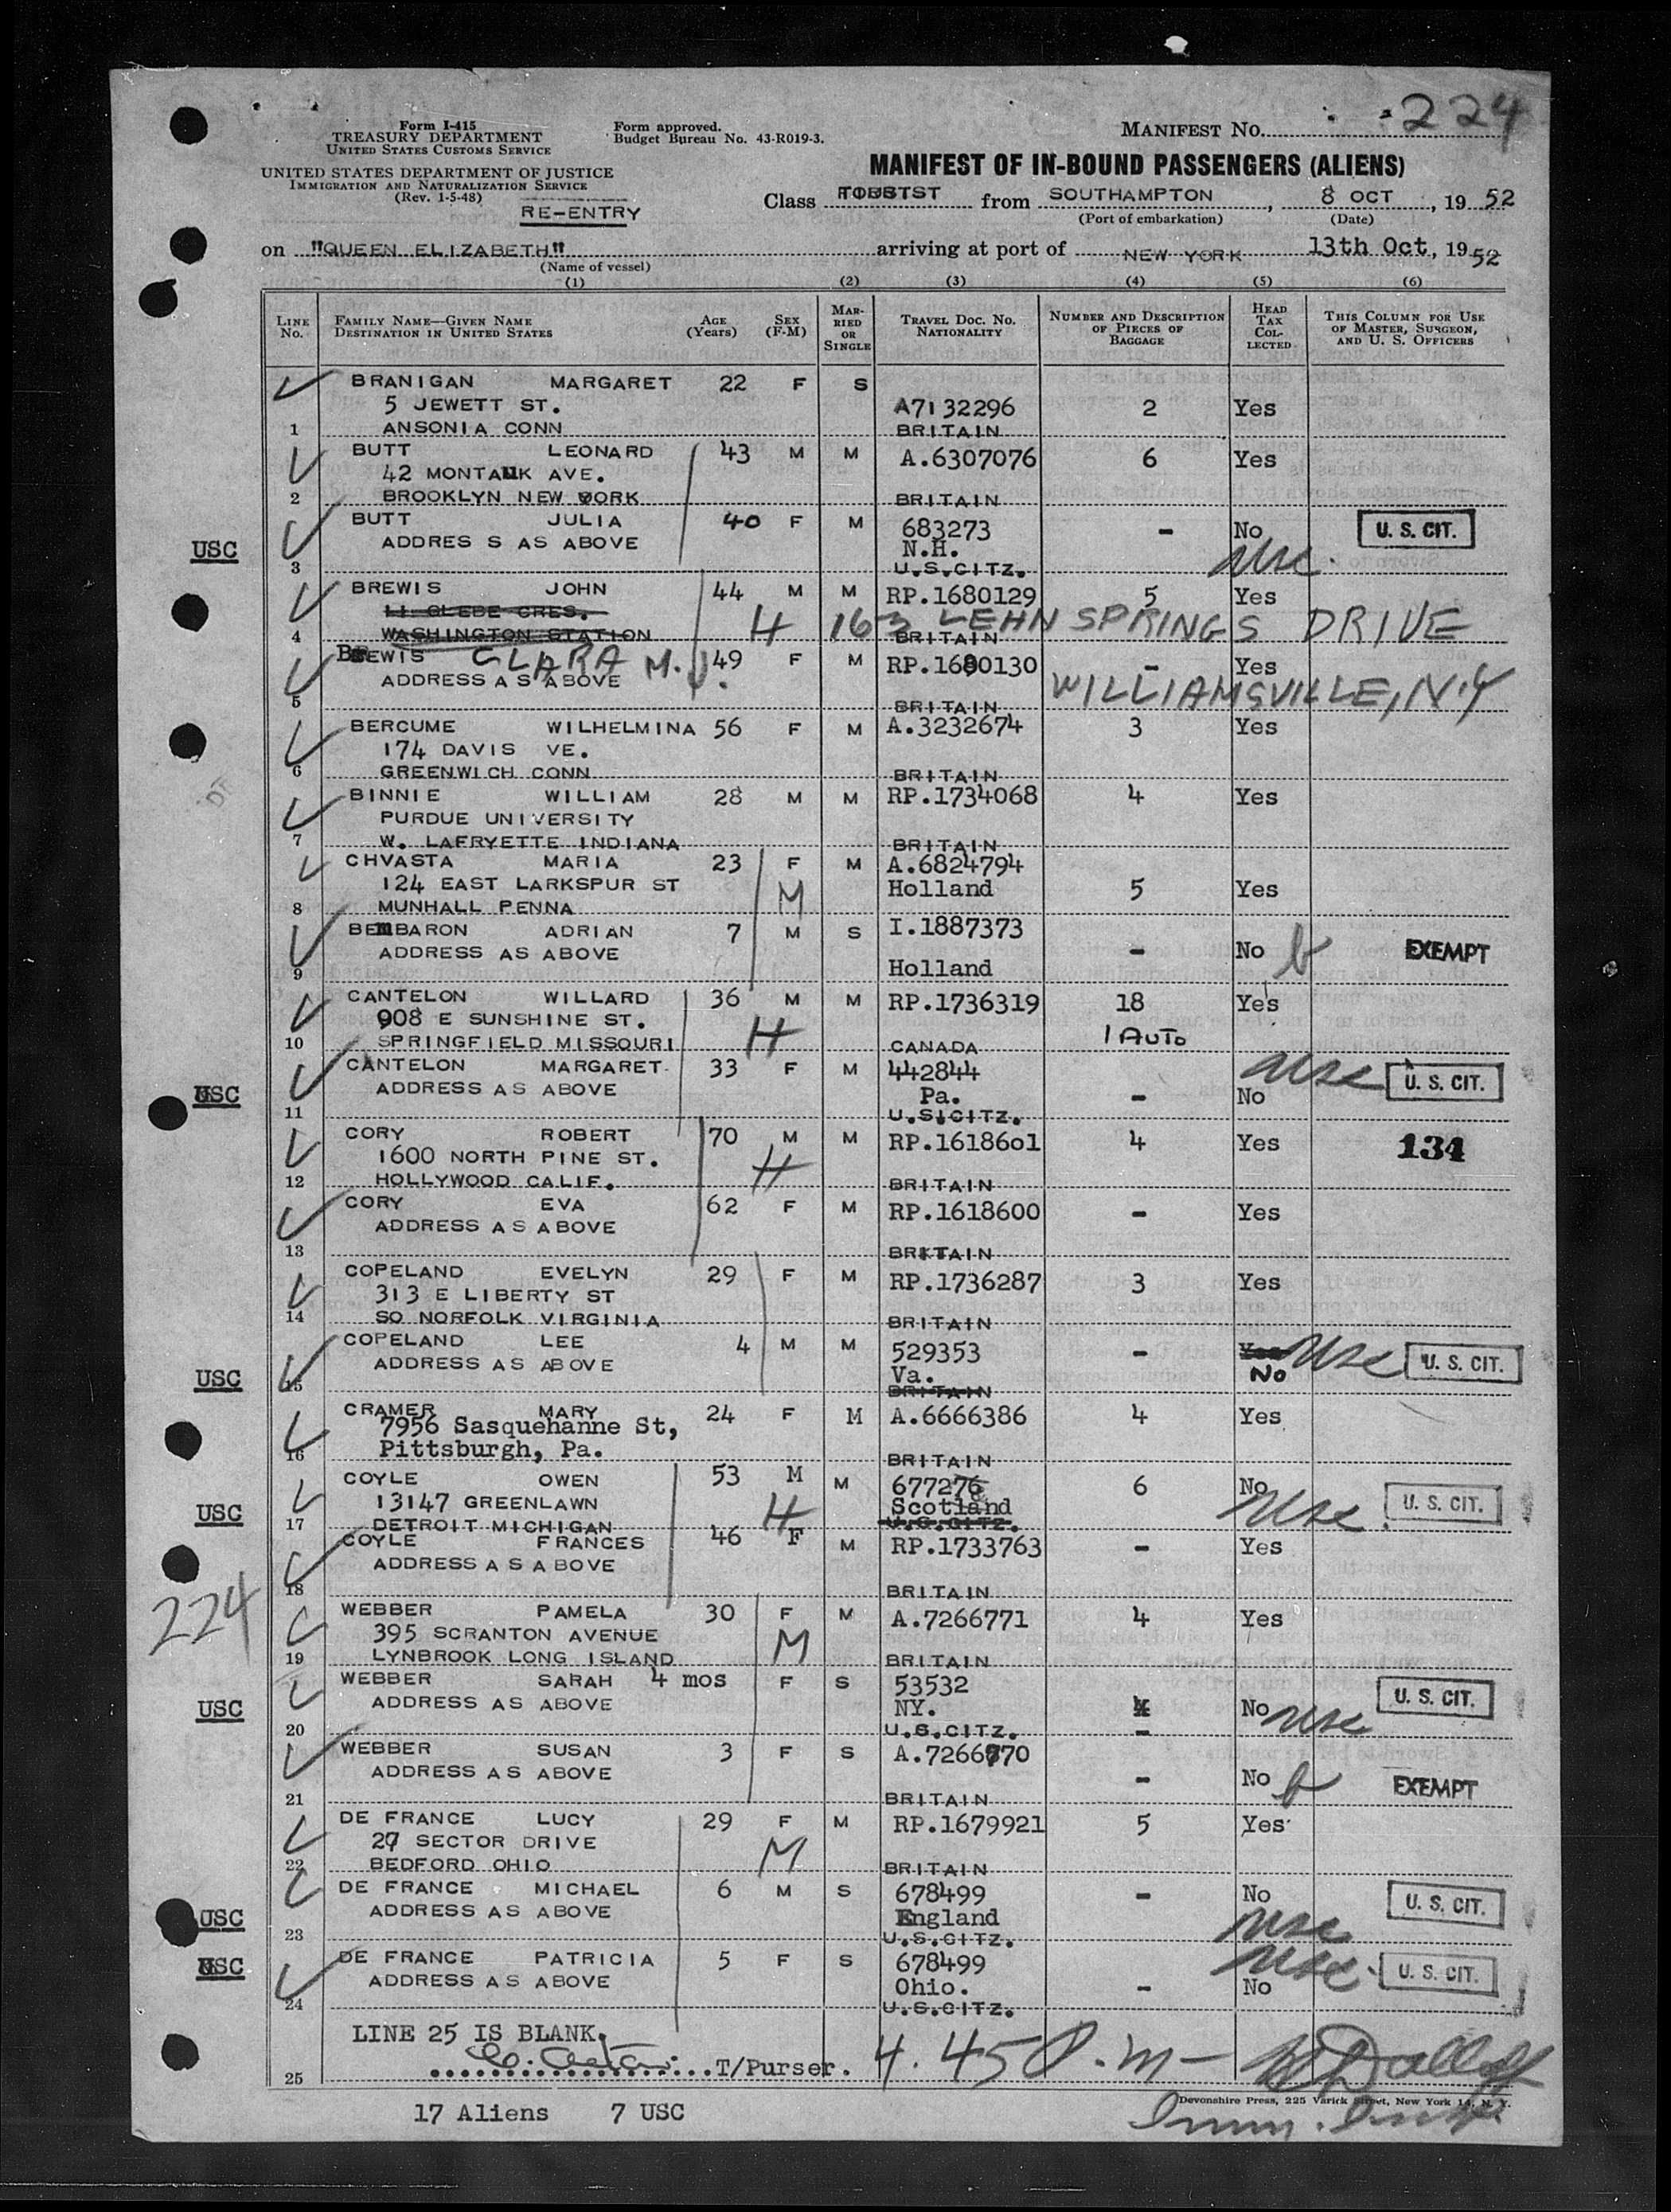 Form I-415
TREASURY DEPARTMENT
UNITED STATES CUSTOMS SERVICE
UNITED STATES DEPARTMENT OF JUSTICE
IMMIGRATION AND NATURALIZATION SERVICE
(Rev. 1-5-48)
RE-ENTRY
Form approved.
Budget Bureau No. 43-R019-3.
MANIFEST NO. 224
MANIFEST OF IN-BOUND PASSENGERS (ALIENS)
Class from SOUTHAMPTON, 8 OCT, 19 52
(Port of embarkation) (Date)
on "QUEEN ELIZABETH" arriving at port of NEW YORK 13th Oct, 19 52
(Name of vessel)
(1) (2) (3) (4) (5) (6)
LINE No. FAMILY NAME—GIVEN NAME DESTINATION IN UNITED STATES AGE (Years) SEX (F-M) MARRIED OR SINGLE TRAVEL DOC. NO. NATIONALITY NUMBER AND DESCRIPTION OF PIECES OF BAGGAGE HEAD TAX COLLECTED THIS COLUMN FOR USE OF MASTER, SURGEON, AND U. S. OFFICERS
BRANIGAN MARGARET 22 F S
5 JEWETT ST. A7132296 2 Yes
1 ANSONIA CONN BRITAIN
BUTT LEONARD 43 M M A.6307076 6 Yes
42 MONTAUK AVE.
2 BROOKLYN NEW YORK BRITAIN
BUTT JULIA 40 F M 683273 - No U. S. CIT.
USC ADDRES S AS ABOVE N.H. usc.
3 U.S.CITZ.
BREWIS JOHN 44 M M RP.1680129 5 Yes
11 GLEBE CRES.
4 WASHINGTON STATION H BRITAIN 163 LEHN SPRINGS DRIVE
BREWIS CLARA M. J. 49 F M RP.1680130 - Yes
ADDRESS A S ABOVE WILLIAMSVILLE, N.Y
5 BRITAIN
BERCUME WILHELMINA 56 F M A.3232674 3 Yes
174 DAVIS VE.
6 GREENWICH CONN BRITAIN
BINNIE WILLIAM 28 M M RP.1734068 4 Yes
PURDUE UNIVERSITY
7 W. LAFRYETTE INDIANA BRITAIN
CHVASTA MARIA 23 F M A.6824794
124 EAST LARKSPUR ST M Holland 5 Yes
8 MUNHALL PENNA
BEMBARON ADRIAN 7 M S I.1887373
ADDRESS AS ABOVE - No EXEMPT
9 Holland
CANTELON WILLARD 36 M M RP.1736319 18 Yes
908 E SUNSHINE ST. H 1 AUTO
10 SPRINGFIELD MISSOURI CANADA
CANTELON MARGARET 33 F M 442844 usc U. S. CIT.
USC ADDRESS AS ABOVE Pa. - No
11 U.S.CITZ.
CORY ROBERT 70 M M RP.1618601 4 Yes 134
1600 NORTH PINE ST. H
12 HOLLYWOOD CALIF. BRITAIN
CORY EVA 62 F M RP.1618600 - Yes
ADDRESS A S ABOVE
13 BRITAIN
COPELAND EVELYN 29 F M RP.1736287 3 Yes
313 E LIBERTY ST
14 SO NORFOLK VIRGINIA BRITAIN
COPELAND LEE 4 M M 529353 - Yes usc U. S. CIT.
USC ADDRESS AS ABOVE Va. No
15 BRITAIN
CRAMER MARY 24 F M A.6666386 4 Yes
7956 Sasquehanne St,
16 Pittsburgh, Pa. BRITAIN
COYLE OWEN 53 M M 677276 6 No U. S. CIT.
USC 13147 GREENLAWN H Scotland usc.
17 DETROIT MICHIGAN U.S.CITZ.
COYLE FRANCES 46 F M RP.1733763 - Yes
ADDRESS A S ABOVE
18 BRITAIN
224
WEBBER PAMELA 30 F M A.7266771 4 Yes
395 SCRANTON AVENUE M
19 LYNBROOK LONG ISLAND BRITAIN
WEBBER SARAH 4 mos F S 53532 U. S. CIT.
USC ADDRESS AS ABOVE NY. No usc
20 U.S.CITZ. -
WEBBER SUSAN 3 F S A.7266770
ADDRESS A S ABOVE - No EXEMPT
21 BRITAIN
DE FRANCE LUCY 29 F M RP.1679921 5 Yes
27 SECTOR DRIVE M
22 BEDFORD OHIO BRITAIN
DE FRANCE MICHAEL 6 M S 678499 - No U. S. CIT.
USC ADDRESS AS ABOVE England usc
23 U.S.CITZ.
DE FRANCE PATRICIA 5 F S 678499 usc. U. S. CIT.
USC ADDRESS AS ABOVE Ohio. - No
24 U.S.CITZ.
LINE 25 IS BLANK.
25 T/Purser. 4.45 P.m-
Devonshire Press, 225 Varick Street, New York 14, N. Y.
17 Aliens 7 USC